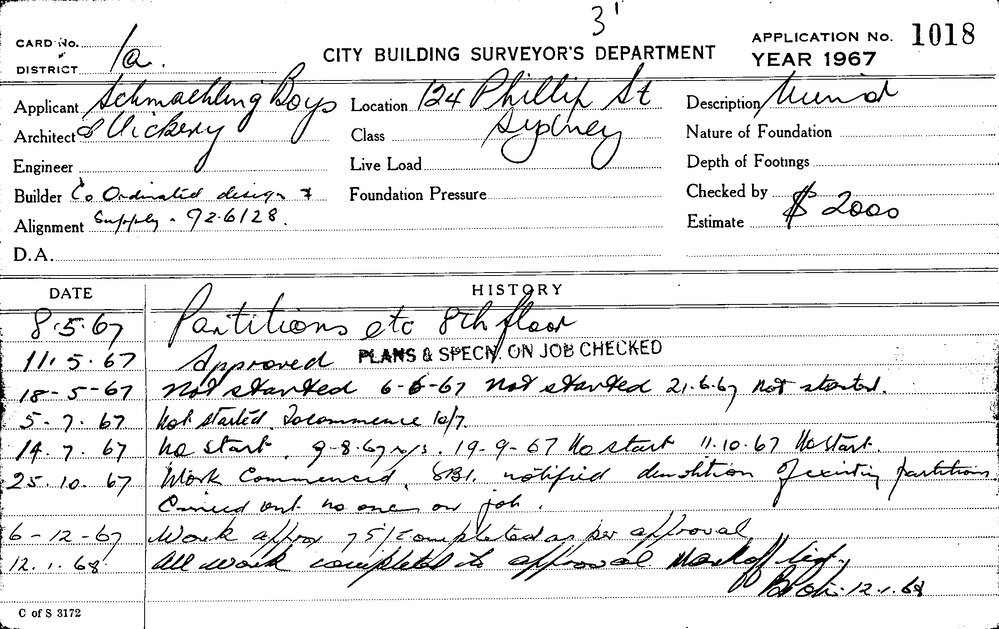 3'
CARD No.
DISTRICT 1a.
CITY BUILDING SURVEYOR'S DEPARTMENT
APPLICATION No. 1018
YEAR 1967
Applicant Schmaehling Boys
Location 124 Phillip St
Description
Architect & Vickery
Class Sydney
Nature of Foundation
Engineer
Live Load
Depth of Footings
Builder Co Ordinated design &
Foundation Pressure
Checked by
Alignment Supply - 92.6128.
Estimate $ 2000
D.A.
DATE HISTORY
8.5.67 Partitions etc 8th floor
11.5.67 Approved PLANS & SPECN. ON JOB CHECKED
18-5-67 Not started 6-6-67 Not started 21.6.67 Not started.
5.7.67 Not started. To commence 10/7.
14.7.67 No start. 9-8.67 n/s. 19-9-67 No start 11.10.67 No start.
25.10.67 Work Commenced. notified demolition of existing partitions
Carried out no one on job.
6-12-67 Work approx 75% completed as per approval
12.1.68 All work completed to approval Mark off list.
12.1.68
C of S 3172